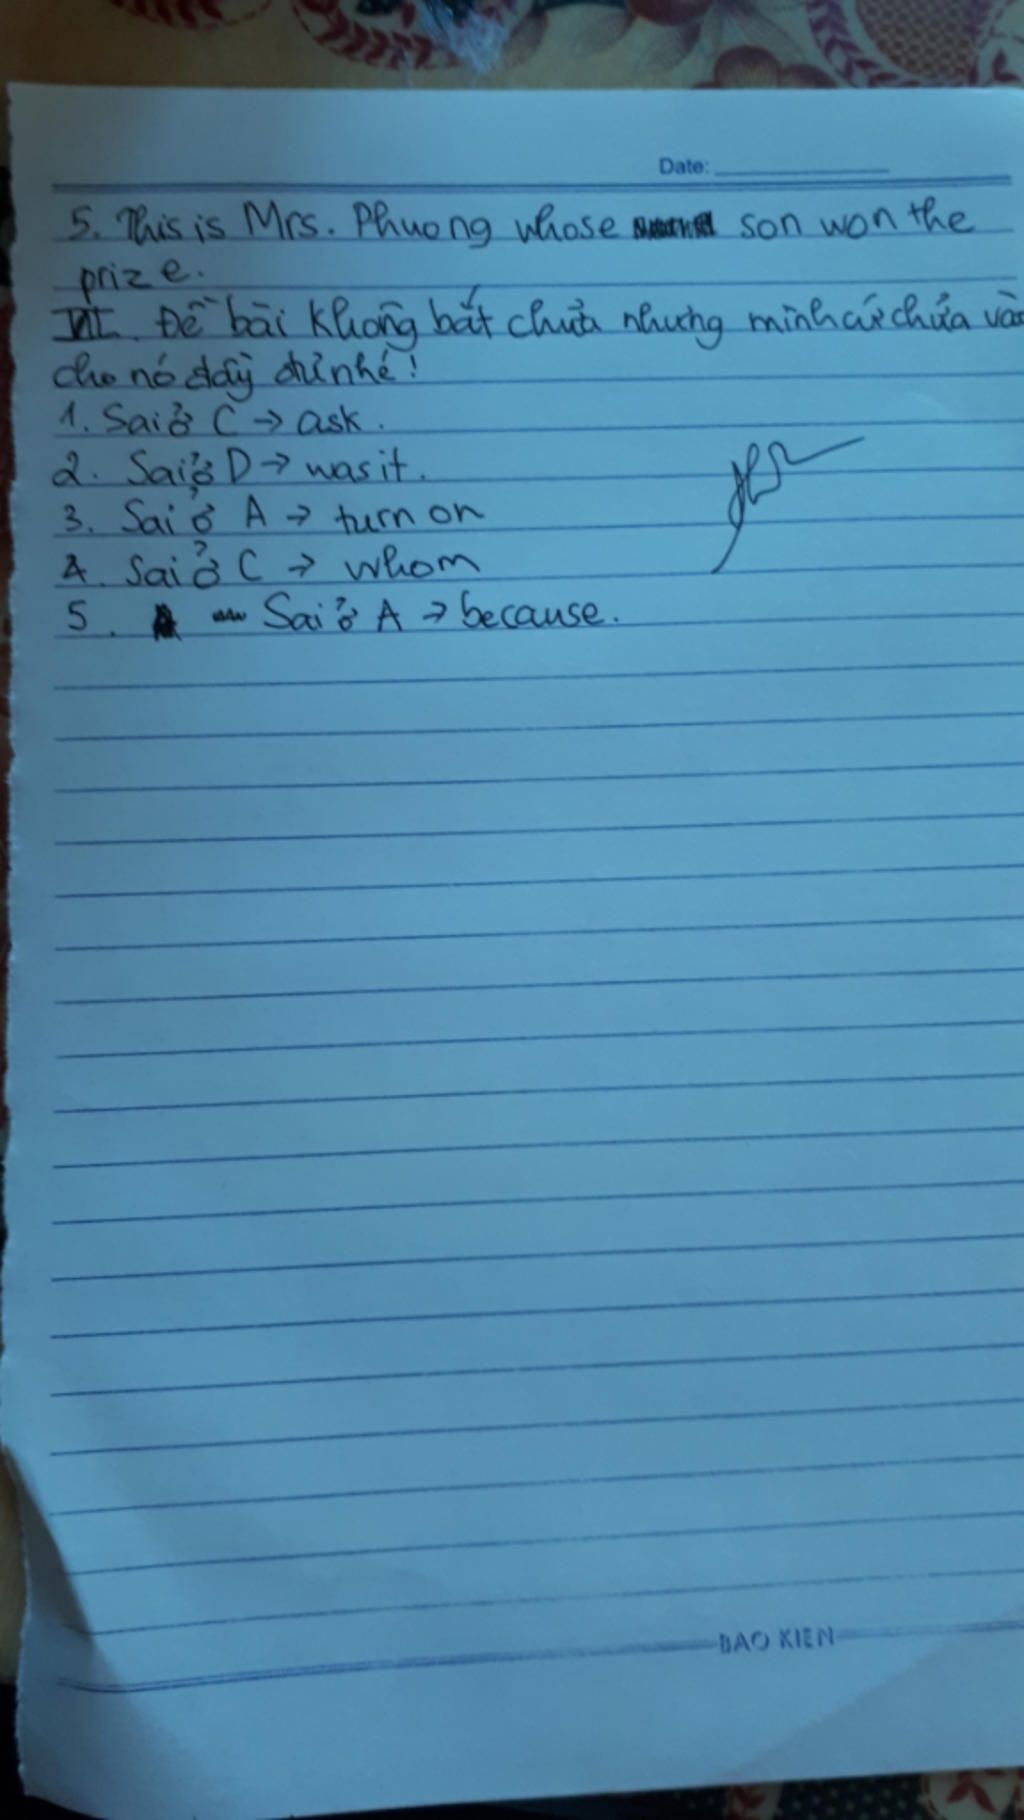 Date:
5. This is Mrs. Phuong whose son won the
prize.
VII. Đề bài không bắt chữa nhưng mình cứ chữa vào
cho nó đầy đủ nhé!
1. Sai ở C → ask.
2. Sai ở D → was it.
3. Sai ở A → turn on
4. Sai ở C → whom
5. Sai ở A → because.
BAO KIEN